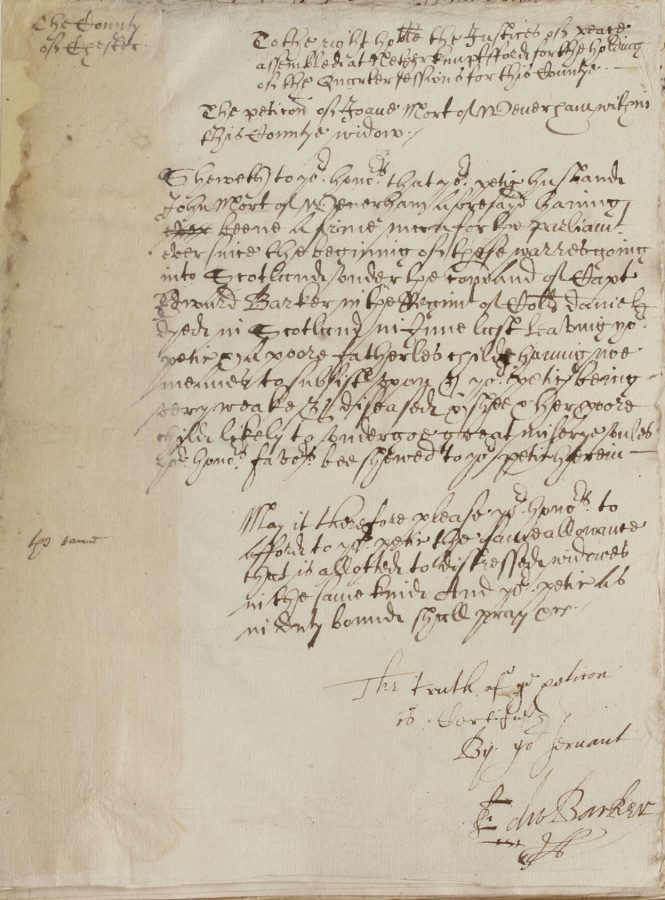 The County
of Chester
To the right ho:ble the Justices of peace
assembled at Nether knuttsford for the holding
of the Quarter sessions for this Countye
The peticon of Joane Mort of Weverham within
this Countye widow./
Sheweth to yor honors that yor petir husband
John Mort of Weverham aforesayd haveing
beene in armes for the parliamt
ever since the begining of these warres going
into Scotland vnder the comand of Capt
Edward Barker in the Regimt of Collo daniell
dyed in Scotland in June last leaving yor
petir & a poore fatherles child haveing noe
meanes to subsist vpon & yor petir being
very weake & diseased & her poore
child likely to vndergoe great miserye vnles
yor honors favor bee shewed to yor petir herein
May it therefore please yor honors to
afford to yor petir the same allowance
that is allotted to distressed widowes
in the same kind And yor petir as
in duty bound shall pray &c
The truth of ye peticon
is Certified
By yor servant
Edw Barker